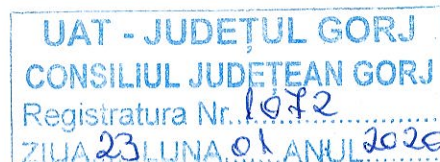 UAT - JUDEȚUL GORJ
CONSILIUL JUDEȚEAN GORJ
Registratura Nr. 1072
ZIUA 23 LUNA 01 ANUL 2026